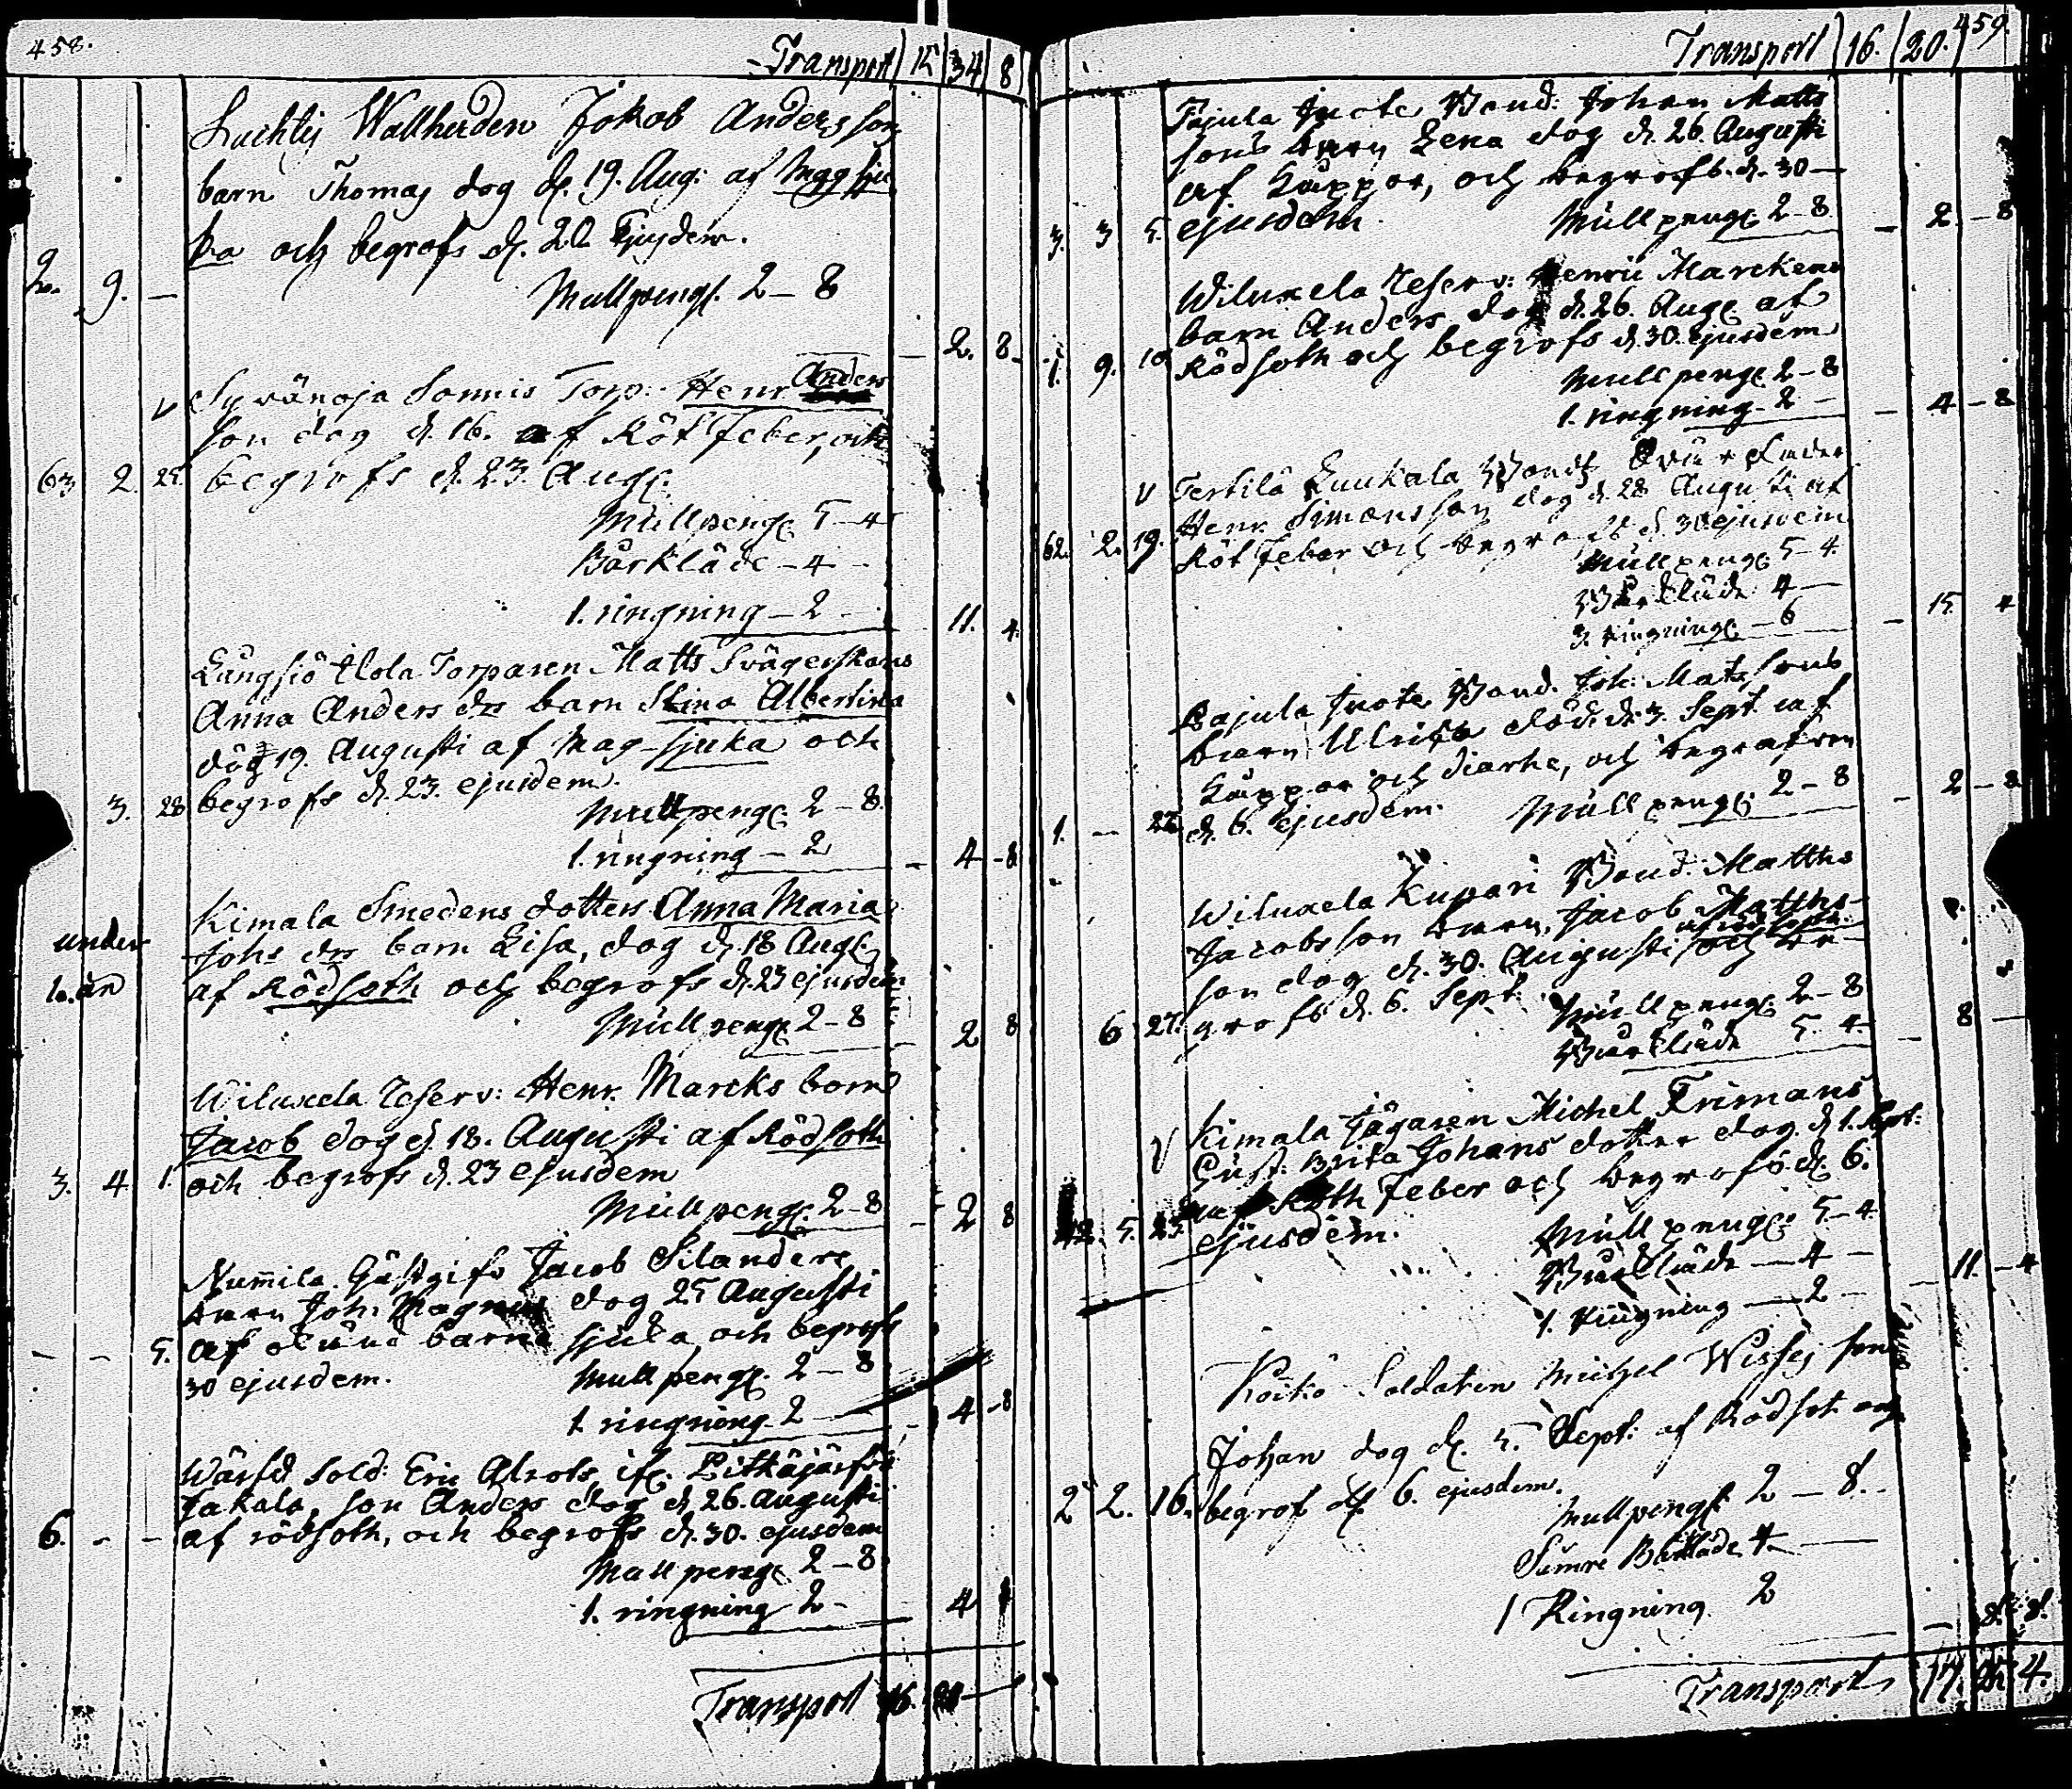 458.
Transport 15 34 8
Luchty Wallherden Jokob Andersson
barn Thomas dog d. 19. Aug: af Maggsju
ka och begrofs d. 20 Ejusdem.
2. 9. —
Mullpeng. 2 – 8
— 2. 8.
v Syvänoja Sonnis Torp. Henr. Anders
son dog d. 16. af Röt feber, och
63 2. 25. begrofs d. 23. Aug.
Mullpeng. 5 – 4
Bårkläde – 4 –
1. ringning – 2 – 11. 4.
Långsjö Torparen Matts Svägerskans
Anna Anders drs barn Stina Albertina
dog 19. Augusti af Mag-sjuka och
3. 28 begrofs d. 23. ejusdem.
Mullpeng. 2 – 8.
1. ringning – 2 – 4 – 8
Kimala Smedens dotters Anna Maria
under Johs drs barn Lisa, dog d. 18 Aug.
1. år af Rödsoth och begrofs d. 23 ejusdem
Mullpeng. 2 – 8 – 2 8
Wiluxela Reserv: Henr. Marcks barn
Jacob dog d. 18. Augusti af Rödsoth
3. 4. 1. och begrofs d. 23 ejusdem
Mullpeng. 2 – 8 – 2 8
Numila Gästgifv Jacob Silanders
barn Joh: Magnus dog 25 Augusti
— — 5. af okänd barna sjuka, och begrofs
30 ejusdem. Mullpeng. 2 – 8
1. ringning 2 – 4 – 8
Wärfd Sold: Eric Alrots
Jakala, son Anders dog d. 26. Augusti
6. – – af rödsoth, och begrofs d. 30. ejusdem
Mullpeng. 2 – 8
1. ringning 2 – 4
Transport 16. 20 —
459.
Transport 16. 20.
Pajula Juote Bond: Johan Matts
sons barn Lena dog d. 26. Augusti
af Kåppor, och begrofs d. 30 –
3. 3 5. ejusdem Mullpeng. 2 – 8 – 2 – 8
Wiluxela Reserv: Henric Marckens
barn Anders dog d. 26. Aug. af
1. 9. 10. Rödsoth och begrofs d. 30. ejusdem
Mullpeng. 2 – 8
1. ringning – 2 – – 4 – 8
v Tertilä Luukala Bond
Henr. Simonsson dog d. 28 Augusti af
62. 2. 19. Röt feber och begrofs d. 30 ejusdem
Mullpeng. 5 – 4.
Bårkläde 4 –
3. ringning. – 6 – 15 4
Pajula Juote Bond. Joh: Mats sons
barn Ulrika död d. 3. Sept. af
Kåppor och diarhe, och begrafven
1. – 22 d. 6. ejusdem. Mullpeng. 2 – 8 – 2 – 8
Wiluxela Kupari Bond: Matths
Jacobsson barn, Jacob Matths
son dog d. 30. Augusti och be-
6 27. grofs d. 6. Sept. Mullpeng. 2 – 8
Bårkläde 5. 4. – 8 –
v Kimala Jägaren Michel Frimans
Hust: Brita Johans dotter dog d. 1. Sept:
af Röth feber och begrofs d. 6.
42. 5. 25. ejusdem. Mullpeng. 5 – 4
Bårkläde – 4 –
1. ringning – 2 – – 11. – 4
Koikå Soldaten Michel Wissej son
Johan dog d. 5. Sept: af Rödsot och
2 2. 16. begrof d. 6. ejusdem.
Mullpeng. 2 – 8. –
Sämre Bårkläde 4 –
1 Ringning 2
— 8. 8.
Transport 17. 25 4.